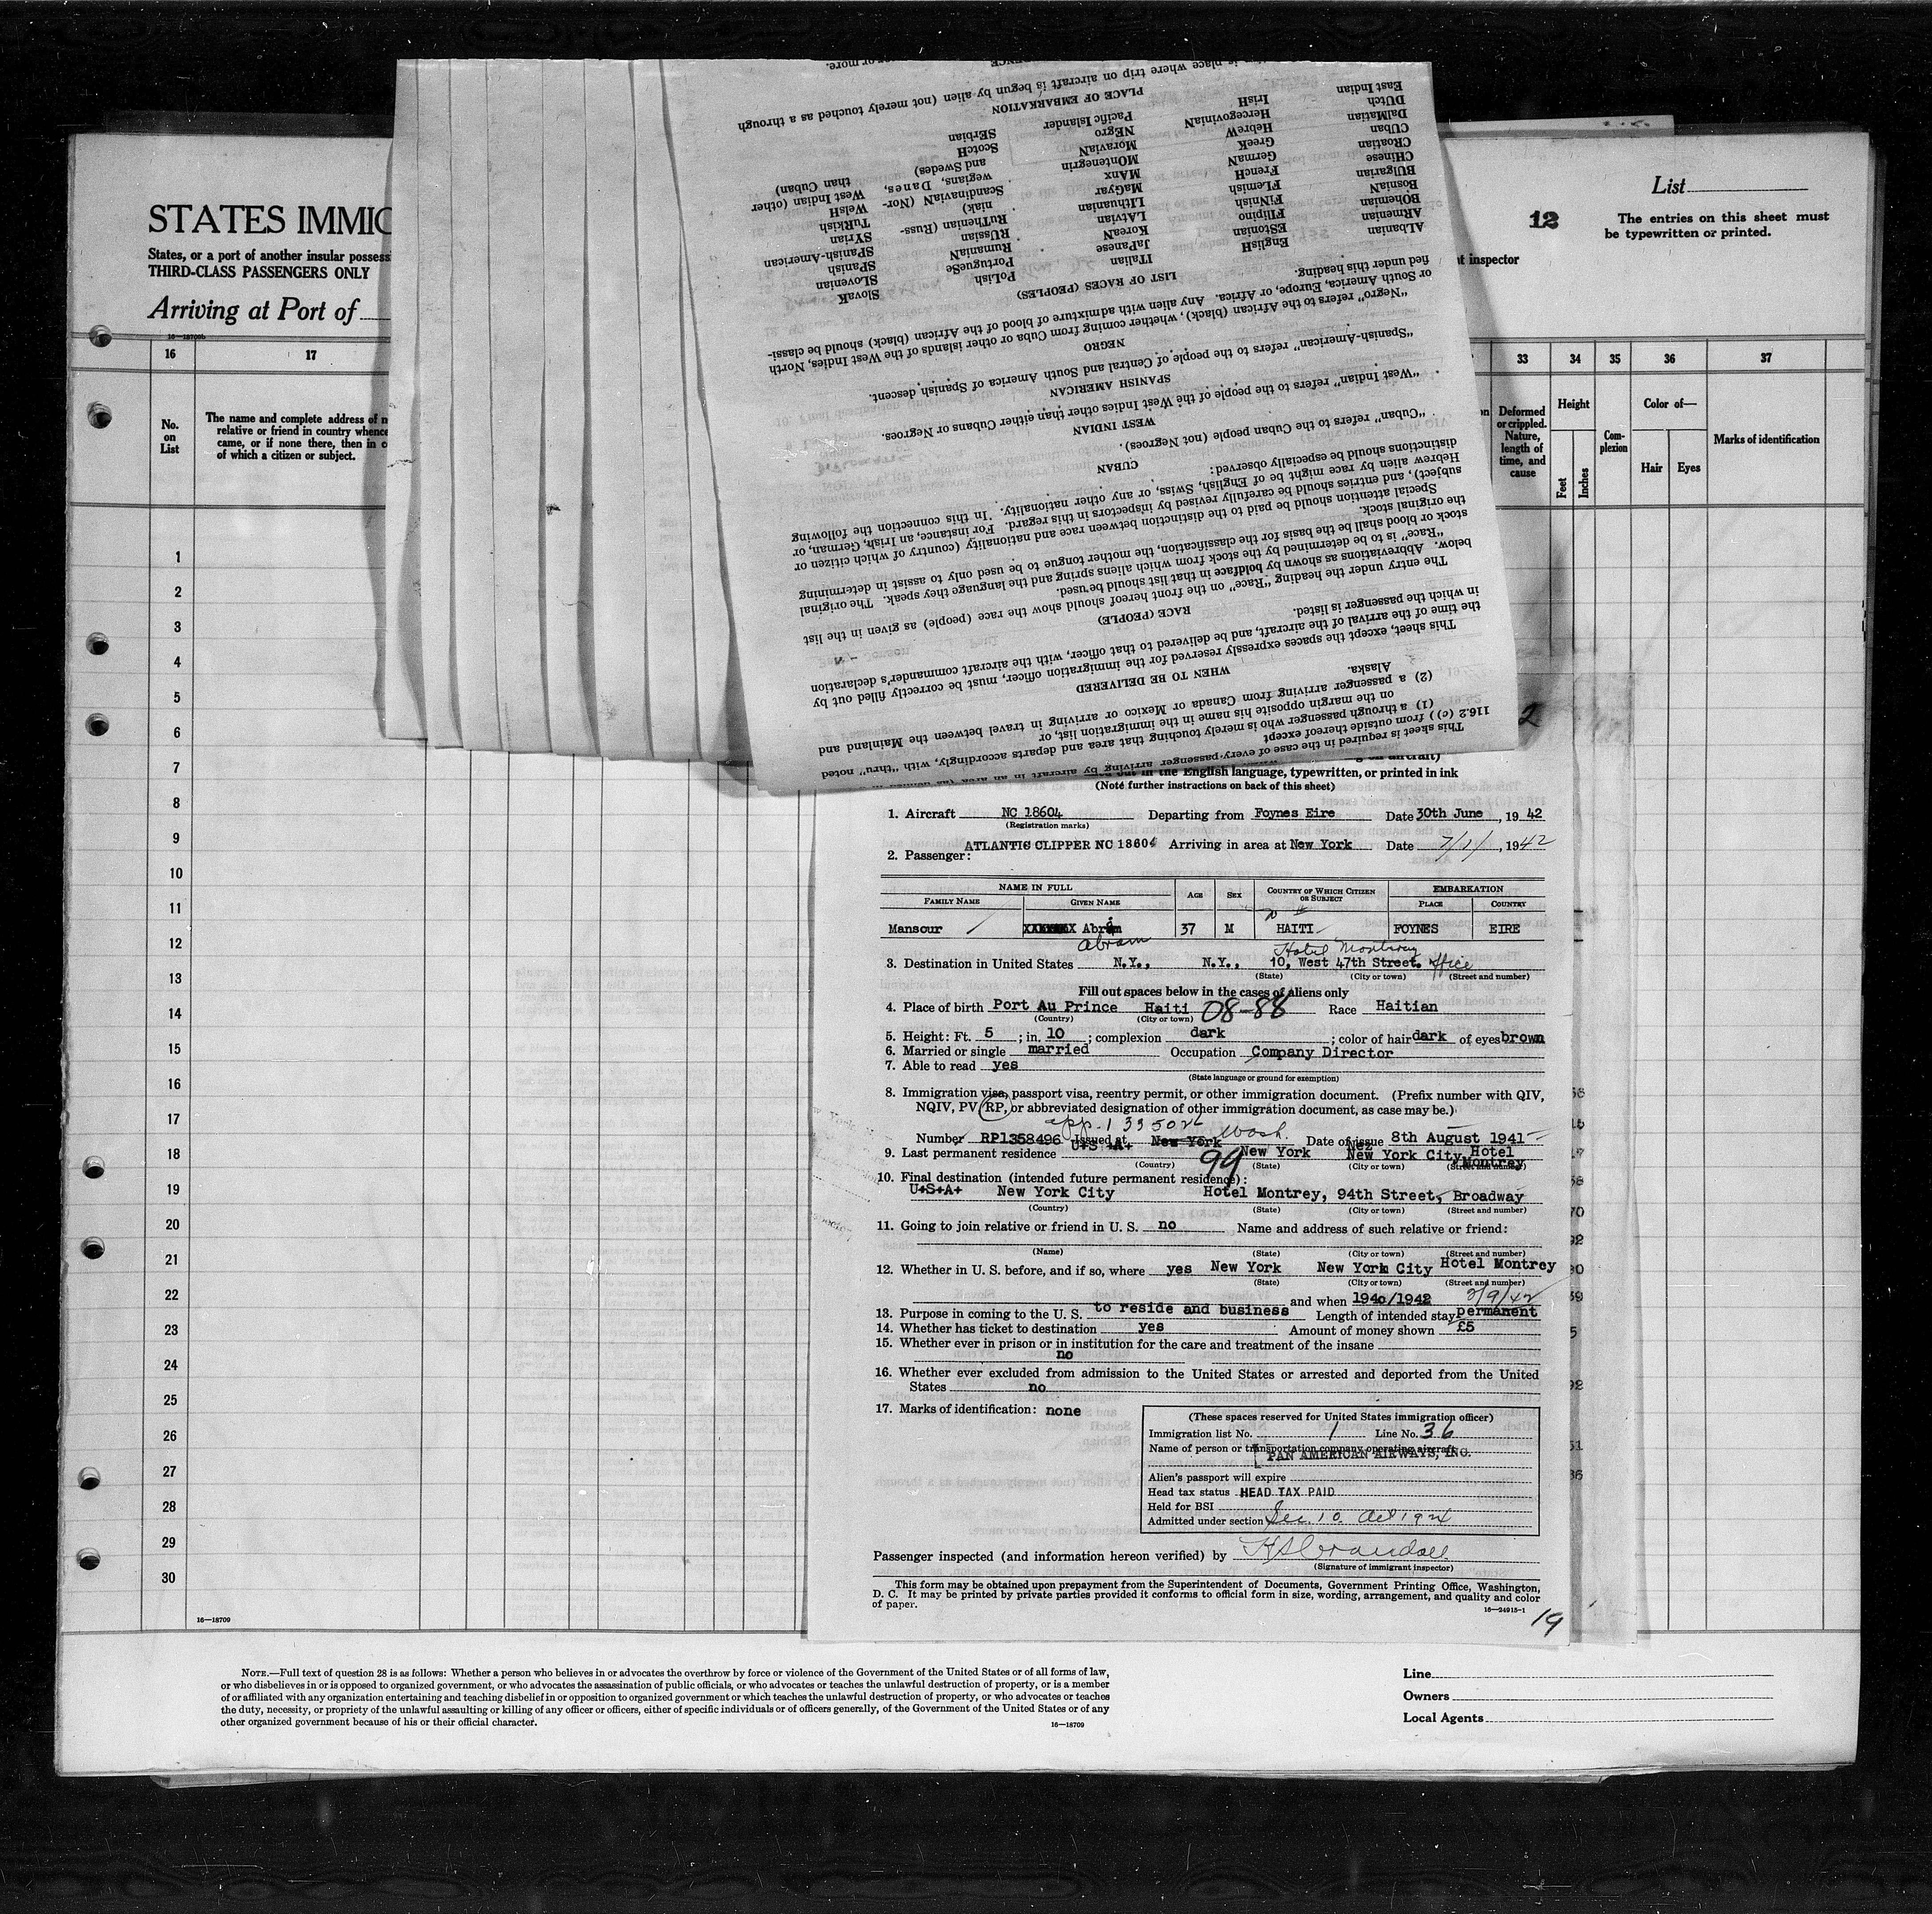 STATES IMMIG
States, or a port of another insular possess
THIRD-CLASS PASSENGERS ONLY
Arriving at Port of
16—18709b
16 17
No. on List
The name and complete address of n
relative or friend in country whence
came, or if none there, then in c
of which a citizen or subject.
1
2
3
4
5
6
7
8
9
10
11
12
13
14
15
16
17
18
19
20
21
22
23
24
25
26
27
28
29
30
16—18709
List
12
The entries on this sheet must
be typewritten or printed.
nt inspector
33 34 35 36 37
Deformed or crippled. Nature, length of time, and cause
Height
Feet Inches
Complexion
Color of—
Hair Eyes
Marks of identification
2
This sheet is required in the case of every passenger arriving by aircraft in an area
116.2 (c)) from outside thereof except
(1) a through passenger who is merely touching that area and departs accordingly, with "thru" noted
on the margin opposite his name in the immigration list, or
(2) a passenger arriving from Canada or Mexico or arriving in travel between the Mainland and
Alaska.
WHEN TO BE DELIVERED
This sheet, except the spaces expressly reserved for the immigration officer, must be correctly filled out by
the time of the arrival of the aircraft, and be delivered to that officer, with the aircraft commander's declaration
in which the passenger is listed.
RACE (PEOPLE)
The entry under the heading "Race" on the front hereof should show the race (people) as given in the list
below. Abbreviations as shown by boldface in that list should be used.
"Race" is to be determined by the stock from which aliens spring and the language they speak. The original
stock or blood shall be the basis for the classification, the mother tongue to be used only to assist in determining
the original stock.
Special attention should be paid to the distinction between race and nationality (country of which citizen or
subject), and entries should be carefully revised by inspectors in this regard. For instance, an Irish, German, or
Hebrew alien by race might be of English, Swiss, or any other nationality. In this connection the following
distinctions should be especially observed:
CUBAN
"Cuban" refers to the Cuban people (not Negroes).
WEST INDIAN
"West Indian" refers to the people of the West Indies other than either Cubans or Negroes.
SPANISH AMERICAN
"Spanish-American" refers to the people of Central and South America of Spanish descent.
NEGRO
"Negro" refers to the African (black), whether coming from Cuba or other islands of the West Indies, North
or South America, Europe, or Africa. Any alien with admixture of blood of the African (black) should be classi-
fied under this heading.
LIST OF RACES (PEOPLES)
AlBanian
ARmenian
BOhemian
BosniaN
BUlgarian
CHinese
CRoatian
CUban
DalMatian
DUtch
East Indian
EnglisH
EStonian
FIlipino
FiNNish
FLemish
FrencH
GermaN
GreeK
HebreW
HercegoviniaN
IrisH
ITalian
JaPanese
KoreaN
LAtvian
LIthUanian
MaGyar
MAnx
MOntenegrin
MoraviaN
NEgro
Pacific Islander
PoLish
PortugueSe
RumaniaN
RUssian
RuThenian (Russ-
niak)
ScandinaviaN (Nor-
wegians, Danes,
and Swedes)
ScotcH
SErbian
SlovaK
SLovenian
SPanish
SPanish-American
SYrian
TuRkish
WelsH
West Indian (other
than Cuban)
PLACE OF EMBARKATION
is place where trip on aircraft is begun by alien (not merely touched as a through
or more.
in the English language, typewritten, or printed in ink
(Note further instructions on back of this sheet)
1. Aircraft NC 18604 Departing from Foynes Eire Date 30th June, 19 42
(Registration marks)
ATLANTIC CLIPPER NC 18604 Arriving in area at New York Date 7/1/, 1942
2. Passenger:
NAME IN FULL AGE SEX COUNTRY OF WHICH CITIZEN OR SUBJECT EMBARKATION
FAMILY NAME GIVEN NAME PLACE COUNTRY
Mansour XXXXXXX Abram 37 M HAITI FOYNES EIRE
abram
Hotel Montrey
3. Destination in United States N.Y., N.Y., 10, West 47th Street. office
(State) (City or town) (Street and number)
Fill out spaces below in the cases of Aliens only
4. Place of birth Port Au Prince Haiti 08-88 Race Haitian
(Country) (City or town)
5. Height: Ft. 5; in. 10; complexion dark; color of hair dark of eyes brown
6. Married or single married Occupation Company Director
7. Able to read yes
(State language or ground for exemption)
8. Immigration visa, passport visa, reentry permit, or other immigration document. (Prefix number with QIV,
NQIV, PV, RP, or abbreviated designation of other immigration document, as case may be.)
Number RP1358496 Issued at New York Wash. Date of issue 8th August 1941
9. Last permanent residence U+S+A+ New York New York City Hotel Montrey
(Country) 99 (State) (City or town) (Street and number)
10. Final destination (intended future permanent residence):
U+S+A+ New York City Hotel Montrey, 94th Street, Broadway
(Country) (State) (City or town) (Street and number)
11. Going to join relative or friend in U. S. no Name and address of such relative or friend:
(Name) (State) (City or town) (Street and number)
12. Whether in U. S. before, and if so, where yes New York New York City Hotel Montrey
(State) (City or town) (Street and number)
and when 1940/1942 3/9/42
13. Purpose in coming to the U. S. to reside and business Length of intended stay permanent
14. Whether has ticket to destination yes Amount of money shown £5
15. Whether ever in prison or in institution for the care and treatment of the insane
no
16. Whether ever excluded from admission to the United States or arrested and deported from the United
States no
17. Marks of identification: none
(These spaces reserved for United States immigration officer)
Immigration list No. 1 Line No. 36
Name of person or transportation company operating aircraft
PAN AMERICAN AIRWAYS, INC.
Alien's passport will expire
Head tax status HEAD TAX PAID
Held for BSI
Admitted under section Sec. 10. Act 1924
Passenger inspected (and information hereon verified) by HS Crandall
(Signature of immigrant inspector)
This form may be obtained upon prepayment from the Superintendent of Documents, Government Printing Office, Washington,
D. C. It may be printed by private parties provided it conforms to official form in size, wording, arrangement, and quality and color
of paper.
16—24915-1
19
NOTE.—Full text of question 28 is as follows: Whether a person who believes in or advocates the overthrow by force or violence of the Government of the United States or of all forms of law,
or who disbelieves in or is opposed to organized government, or who advocates the assassination of public officials, or who advocates or teaches the unlawful destruction of property, or is a member
of or affiliated with any organization entertaining and teaching disbelief in or opposition to organized government or which teaches the unlawful destruction of property, or who advocates or teaches
the duty, necessity, or propriety of the unlawful assaulting or killing of any officer or officers, either of specific individuals or of officers generally, of the Government of the United States or of any
other organized government because of his or their official character.
16—18709
Line
Owners
Local Agents